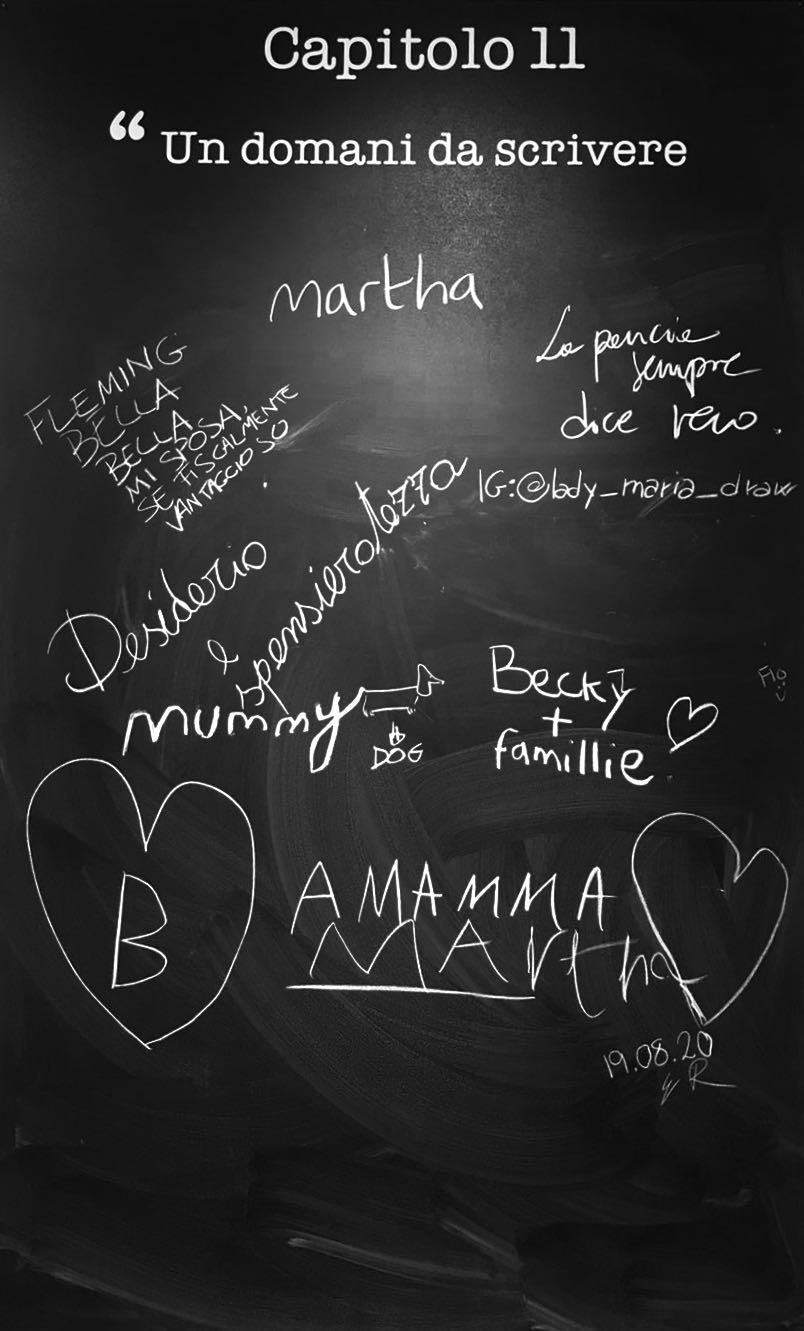 Capitolo 11
“ Un domani da scrivere
martha
FLEMING
BELLA
BELLA
MI SPOSA,
SE FISCALMENTE
VANTAGGIOSO
.
La
sempre
dice vero.
IG:@lady_maria_draw
Desiderio
e
spensieratezza
mummy
DOG
Becky
+
famillie
Flo
B
A MAMMA
MArtha
19.08.20
R